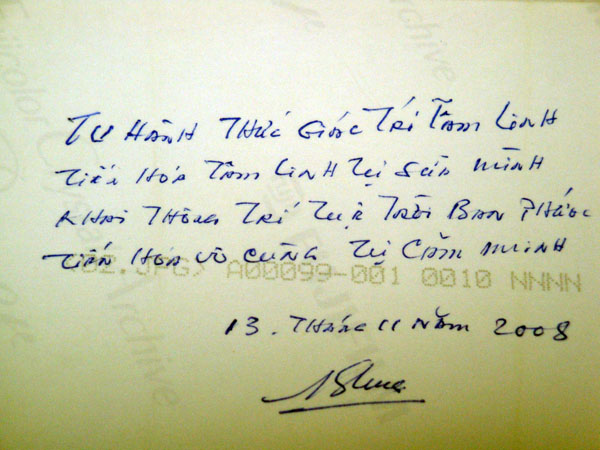 TU HÀNH THỨC GIÁC TRÍ TÂM LINH
TIẾN HÓA TÂM LINH TỰ SÁN MÌNH
KHAI THÔNG TRÍ TUỆ TRỜI BAN PHƯỚC
TIẾN HÓA VÔ CÙNG TỰ CẢM MINH
02.JPG> A00099-001 0010 NNNN
13. THÁNG 11 NĂM 2008